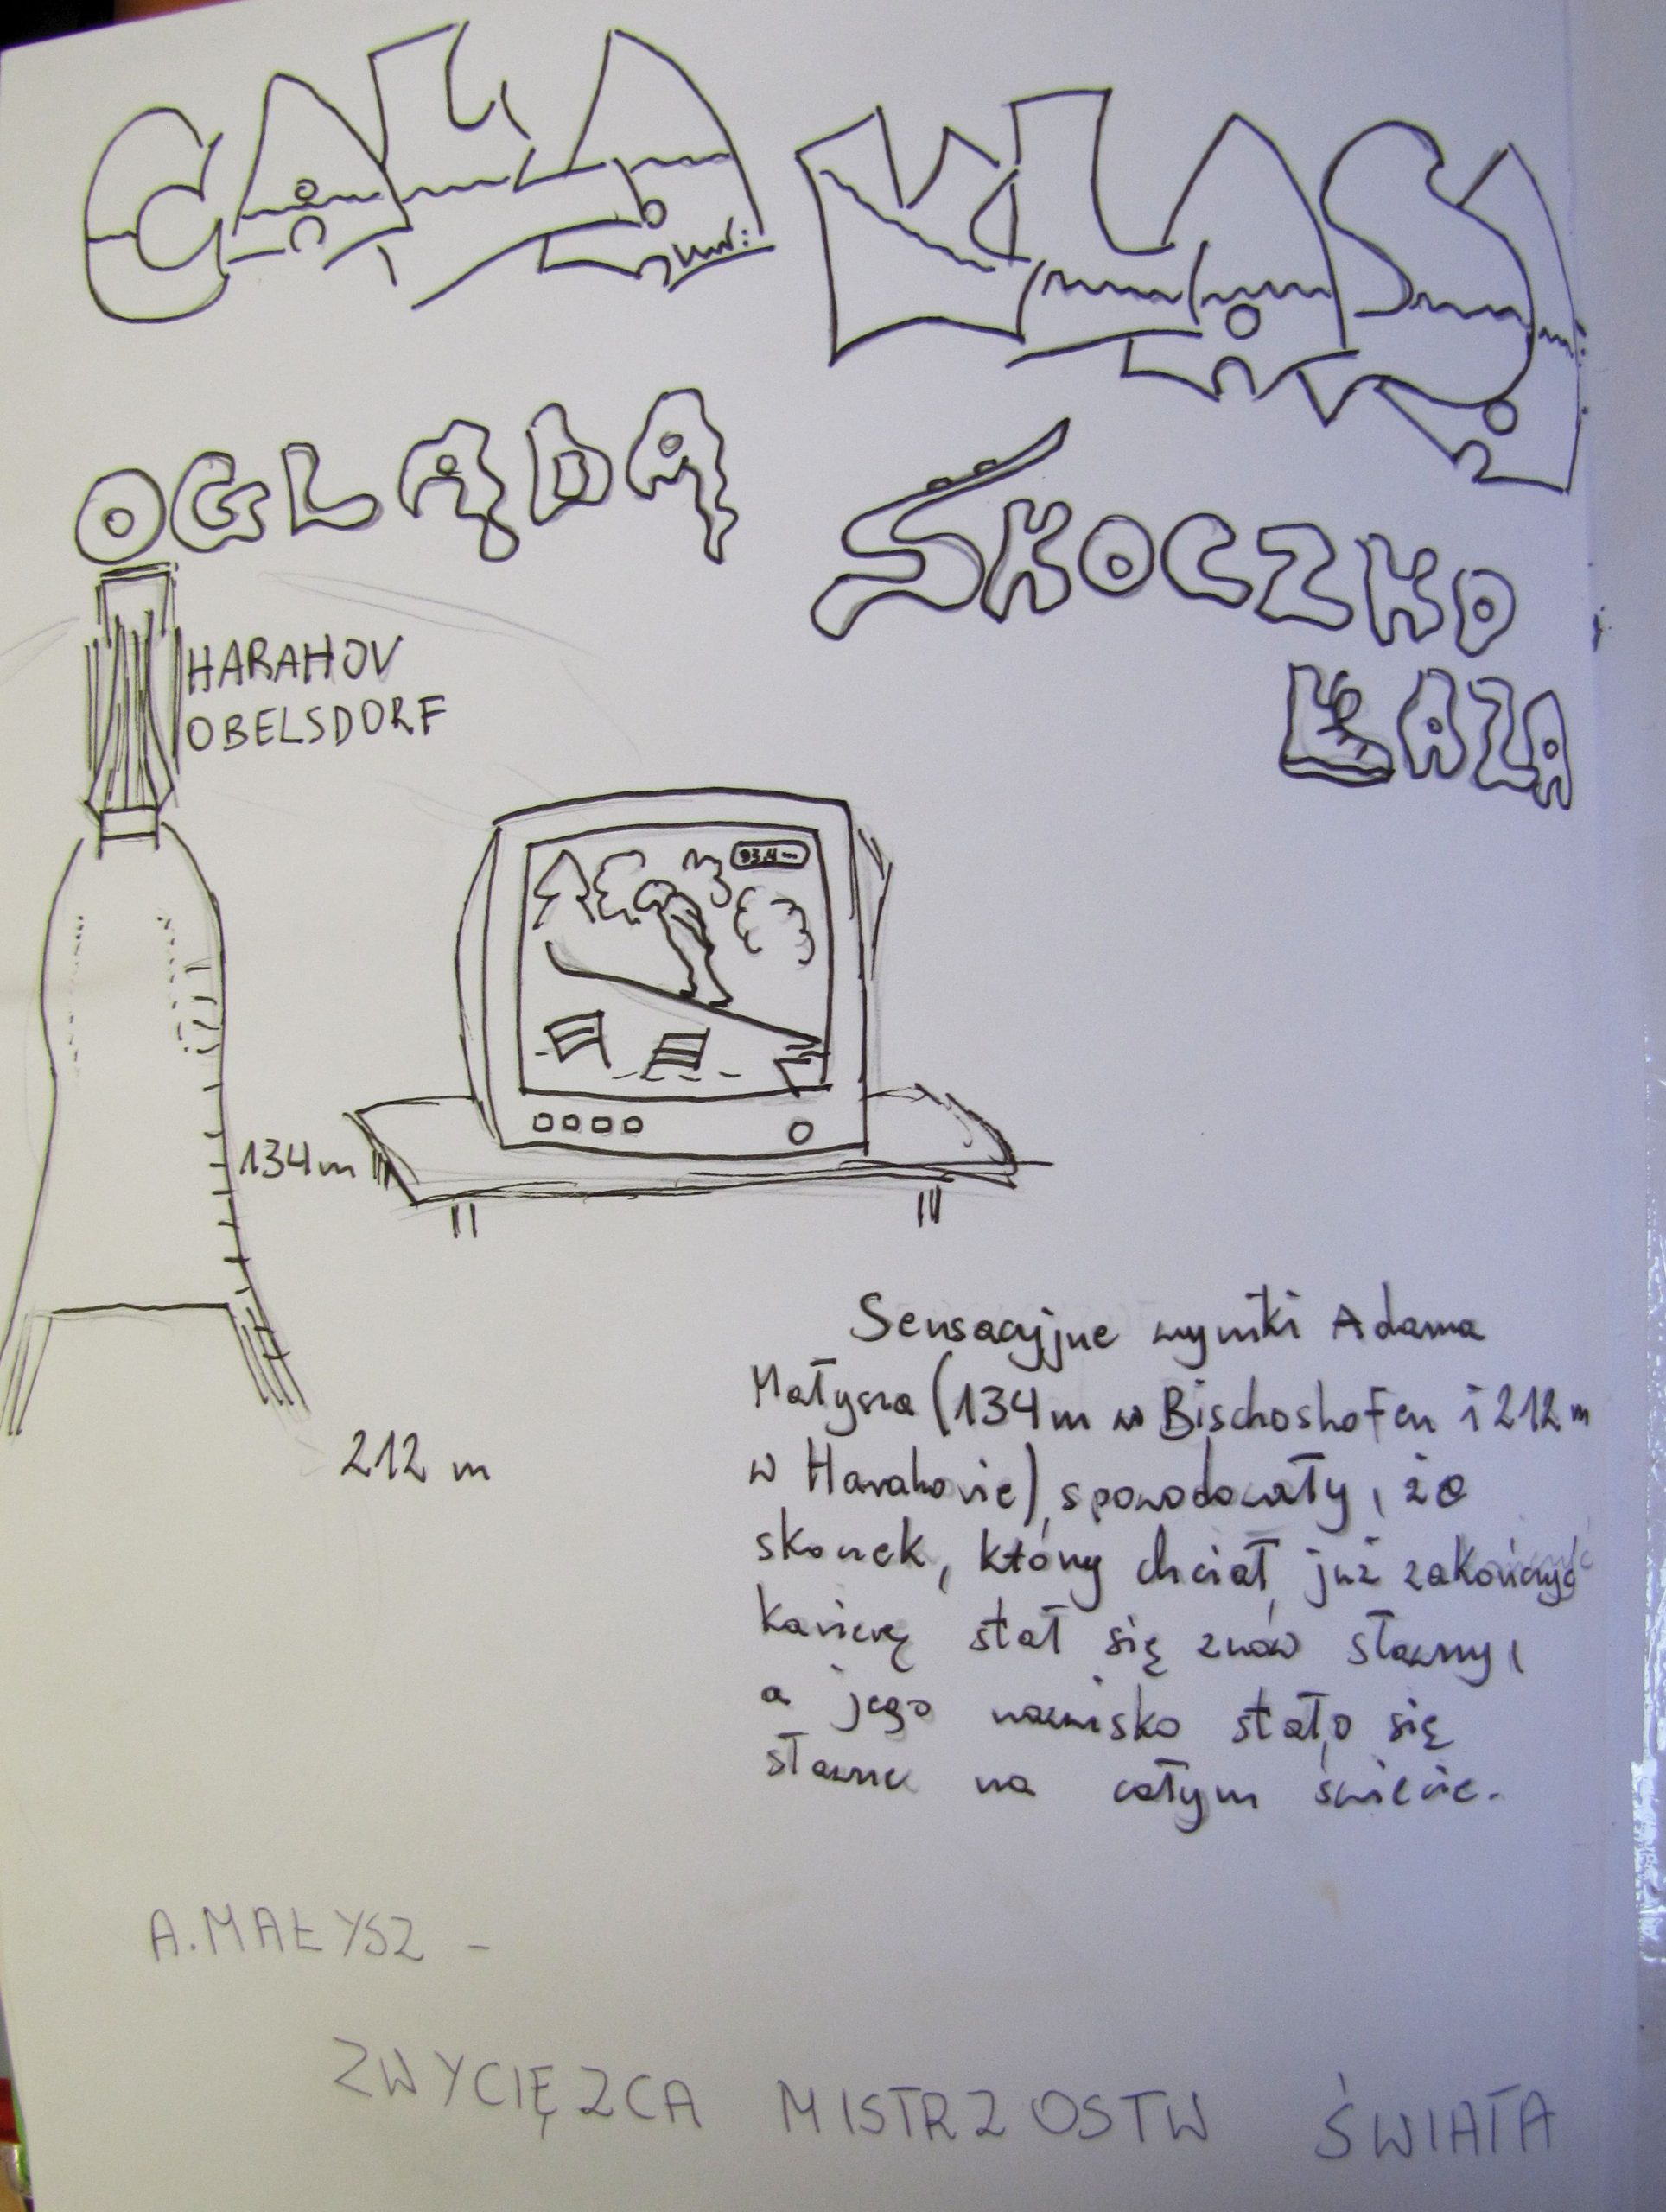 CAŁA KLASA
OGLĄDA SKOCZKO
ŁAZA
HARAHOV
OBELSDORF
134m
212 m
Sensacyjne wyniki Adama
Małysza (134m w Bischoshofen i 212m
w Harahovie), spowodowały, że
skoczek, który chciał już zakończyć
karierę stał się znów sławny,
a jego nazwisko stało się
sławne na całym świecie.
A. MAŁYSZ -
ZWYCIĘZCA MISTRZOSTW ŚWIATA